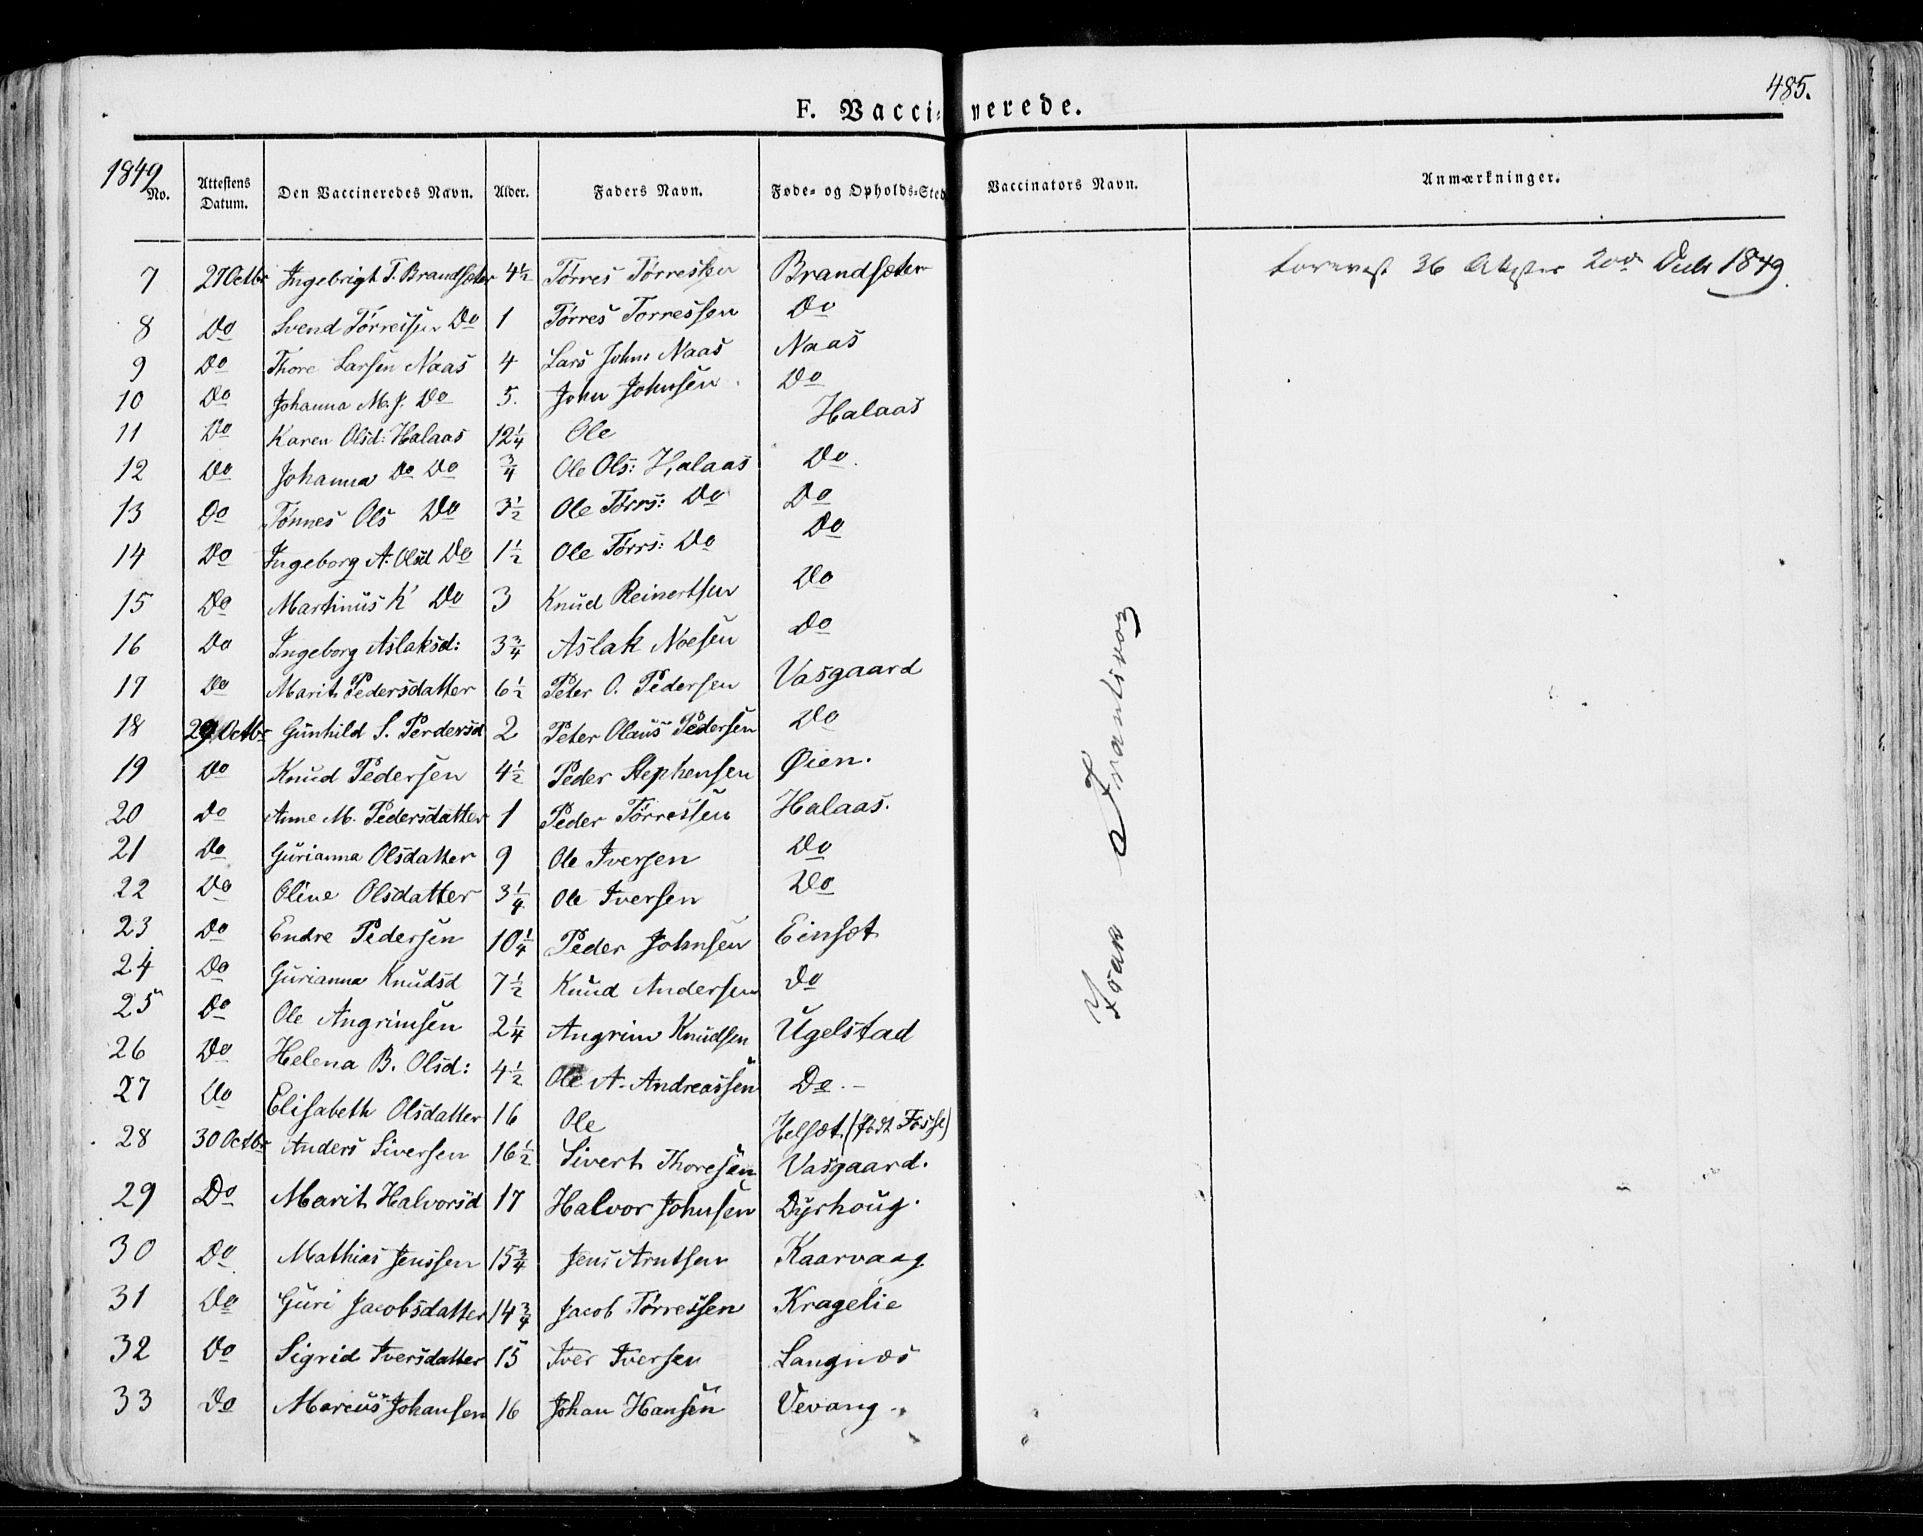 485.
F. Vaccinerede.
1849
No. Attestens Datum. Den Vaccineredes Navn. Alder. Faders Navn. Føde- og Opholds-Sted Vaccinators Navn. Anmærkninger.
7 27 Octbr Ingebrigt T. Brandsæter 4½ Tørres Tørressen Brandsæter 36 1849.
8 Do Svend Tørressen Do 1 Tørres Torressen Do
9 Do Thore Larsen Naas 4 Lars Johns Naas Naas
10 Do Johanna M. J. Do 5. John Johnsen Do
11 Do Karen Olsd: Halaas 12¼ Ole Halaas
12 Do Johanna Do Do ¾ Ole Ols: Halaas Do.
13 Do Tønnes Ols Do 3½ Ole Tørrs: Do Do
14 Do Ingeborg A. Olsd Do 1½ Ole Tørrs: Do Do
15 Do Martinus K Do 3 Knud Reinertsen Do
16 Do Ingeborg Aslaksd: 3¾ Aslak Noesen Do
17 Do Marit Pedersdatter 6½ Peter O. Pedersen Vasgaard
18 29 Octbr Gunhild S. Perdersd 2 Peter Olaus Pedersen Do
19 Do Knud Pedersen 4½ Peder Stephensen Øien.
20 Do Anne M. Pedersdatter 1 Peder Tørressen Halaas.
21 Do Gurianna Olsdatter 9 Ole Iversen Do
22 Do Oline Olsdatter 3¼ Ole Iversen Do
23 Do Endre Pedersen 10¼ Peder Johnsen Einsæt
24 Do Gurianna Knudsd 7½ Knud Andersen Do
25 Do Ole Angrimsen 2¼ Angrim Knudsen Ugelstad
26 Do Helena B. Olsd: 4½ Ole A. Andreassen Do.-
27 Do Elisabeth Olsdatter 16 Ole Helsæt (født Fosse)
28 30 Octbr Anders Siversen 16½ Sivert Thoresen Vasgaard.
29 Do Marit Halvorsd 17 Halvor Johnsen Dyrhoug.
30 Do Mathias Jenssen 15¾ Jens Arntsen Kaarvaag
31 Do Guri Jacobsdatter 14¾ Jacob Tørressen Kragelie
32 Do Sigrid Iversdatter 15 Iver Iversen Langnæs
33 Do Marcus Johansen 16 Johan Hansen Vevang